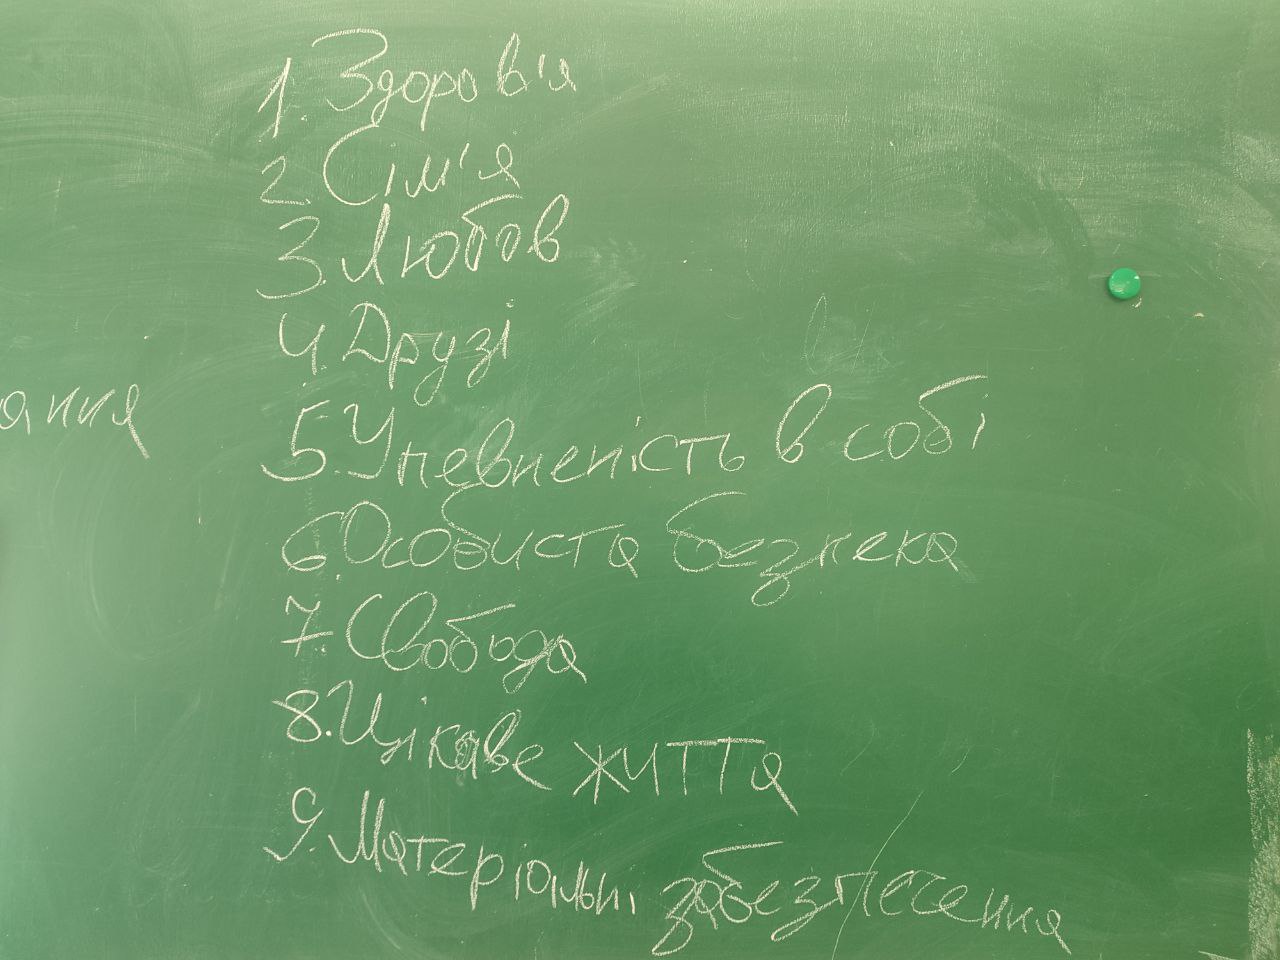 1. Здоров'я
2. Сім'я
3. Любов
4. Друзі
ання
5. Упевненість в собі
6. Особиста безпека
7. Свобода
8. Цікаве життя
9. Матеріальні забезпесення